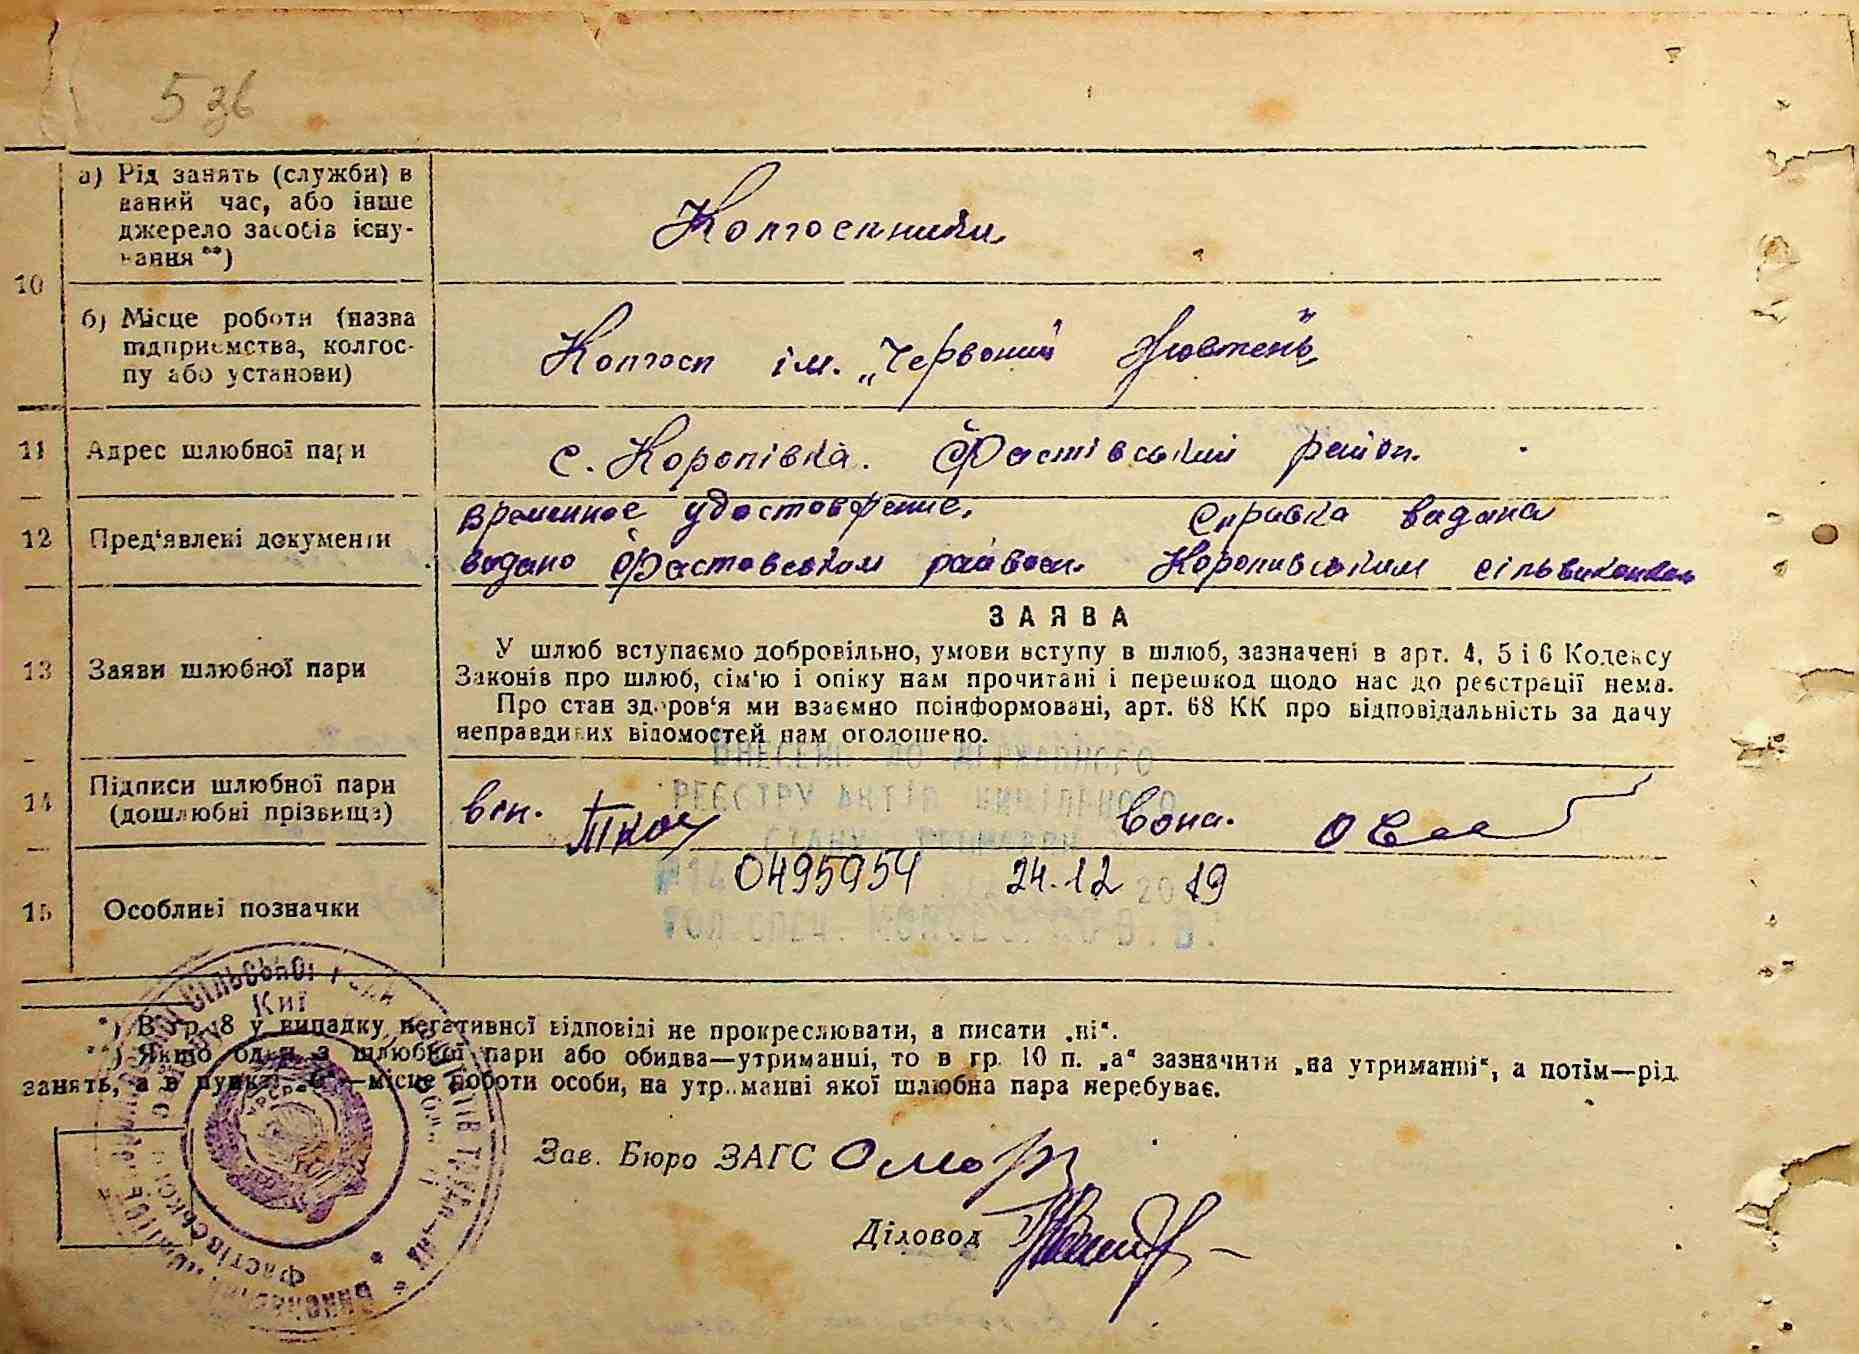 536
10
а) Рід занять (служби) в
даний час, або інше
джерело засобів існу-
вання **)
Колгоспники
б) Місце роботи (назва
підприємства, колгос-
пу або установи)
Колгосп ім. „Червоний Жовтень"
11
Адрес шлюбної пари
с. Королівка. Фастівський район.
12
Пред'явлені документи
временное удостоверение,
видано Фастовским райвоен.
Справка видана
Короливським сільвиконком
13
Заяви шлюбної пари
ЗАЯВА
У шлюб вступаємо добровільно, умови вступу в шлюб, зазначені в арт. 4, 5 і 6 Кодексу
Законів про шлюб, сім'ю і опіку нам прочитані і перешкод щодо нас до реєстрації нема.
Про стан здоров'я ми взаємно поінформовані, арт. 68 КК про відповідальність за дачу
неправдивих відомостей нам оголошено.
ВНЕСЕНО ДО ДЕРЖАВНОГО
РЕЄСТРУ АКТІВ ЦИВІЛЬНОГО
СТАНУ ГРОМАДЯН
14
Підписи шлюбної пари
(дошлюбні прізвища)
він.
вона.
15
Особливі позначки
0495954 24.12 2019
ГОЛ.СПЕЦ.
*) В гр. 8 у випадку негативної відповіді не прокреслювати, а писати „ні".
**) Якщо один з шлюбної пари або обидва—утриманці, то в гр. 10 п. „а" зазначити „на утриманні", а потім—рід
занять, а в пункті „б"—місце роботи особи, на утриманні якої шлюбна пара перебуває.
Зав. Бюро ЗАГС
Діловод
УРСР